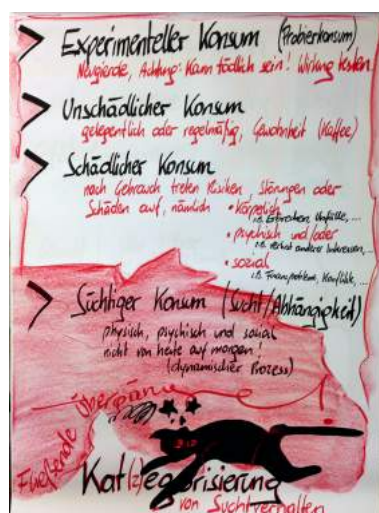 Experimenteller Konsum (Probierkonsum)
Neugierde, Achtung: Kann tödlich sein! Wirkung testen
Unschädlicher Konsum
gelegentlich oder regelmäßig, Gewohnheit (Kaffee)
Schädlicher Konsum
nach Gebrauch treten Risiken, Störungen oder
Schäden auf, nämlich • körperlich
z.B. Erbrechen, Unfälle, ...
• psychisch und/oder
z.B. Verlust anderer Interessen, ...
• sozial
z.B. Finanzprobleme, Konflikte, ...
Süchtiger Konsum (Sucht/Abhängigkeit)
physisch, psychisch und sozial
nicht von heute auf morgen!
(dynamischer Prozess)
Fließende Übergänge
Kat(z)egorisierung
von Suchtverhalten